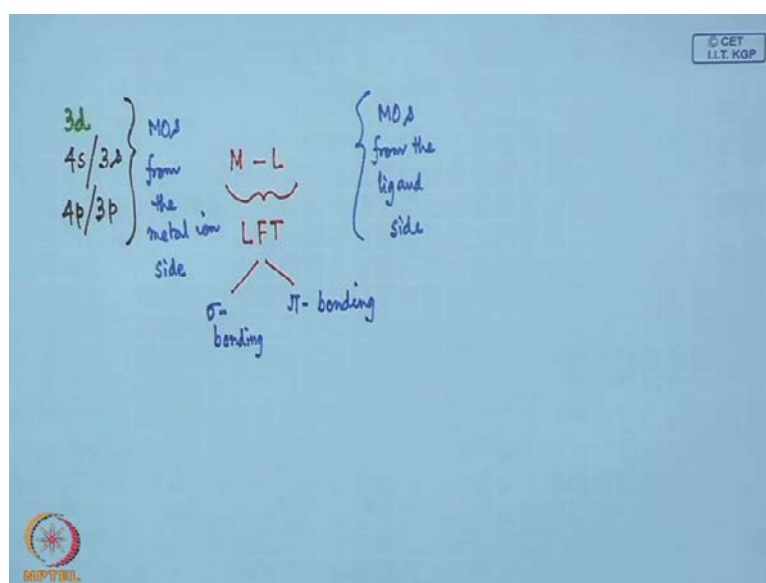 © CET
I.I.T. KGP
3d
4s/3s
4p/3p
MOs
from
the
metal ion
side
M - L
LFT
σ-
bonding
π- bonding
MOs
from the
ligand
side
NPTEL